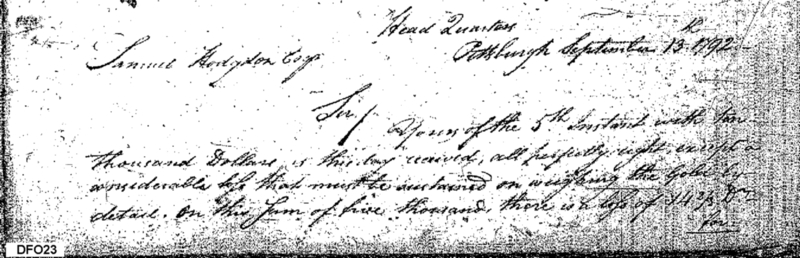 Head Quarters
Pittsburgh September 13th 1792
Samuel Hodgdon Esqr
Sir/
Yours of the 5th Instant with ten
thousand Dollars is this day received, all perfectly right except a
considerable loss that must be sustained on weighing the Gold by
detail. On this sum of five thousand, there is a loss of 14 2/3 Drs
for
DFO23